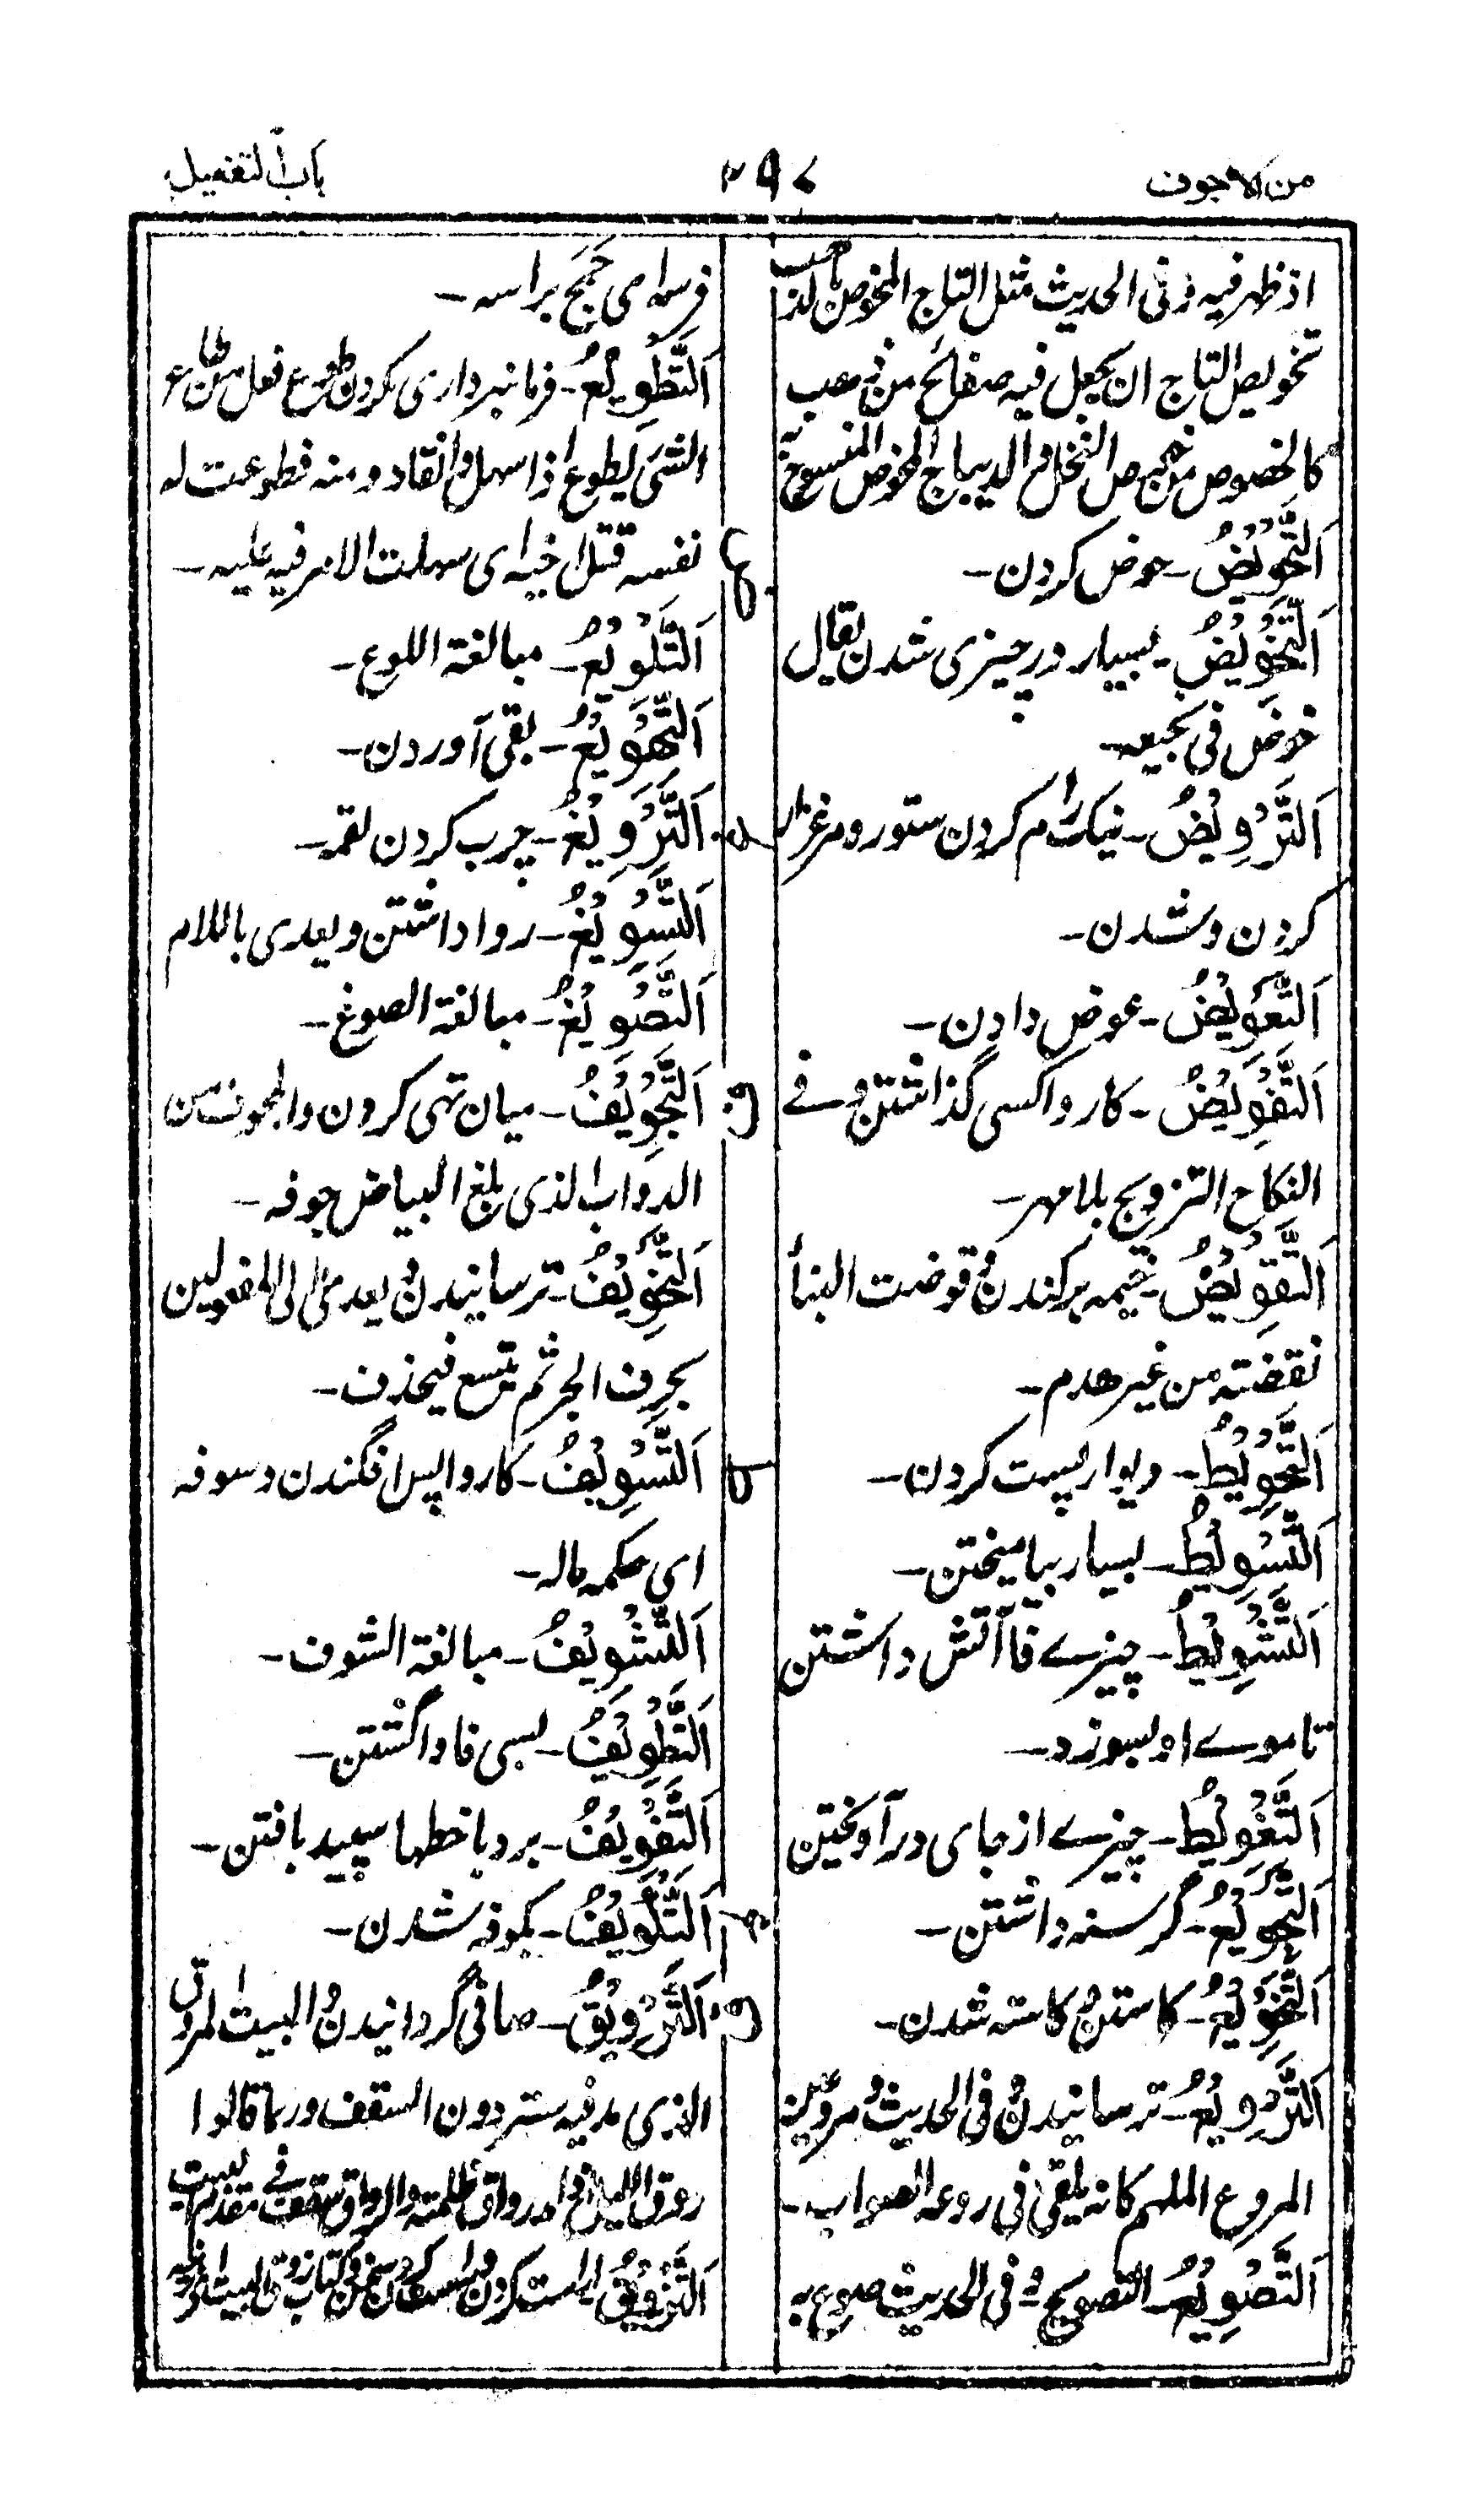 من الاجوف
۲۹۷
باب التفعیل
اذ ظهر فیه و فی الحدیث مثل التاج المخوص بالذهب
تخویص التاج ان یجعل فیه صفائح من ذهب
کالخصوص من خوص النخل والدیباج المخوص المنسوج
اَلتَّحْوِیْضُ۔ حوض کردن۔
اَلتَّخْوِیْضُ۔ بسیار در چیزی شدن یقال
خوض فی نجیعه۔
اَلتَّرْوِیْضُ۔ نیک رام کردن ستور و مرغزار
کردن و شدن۔
اَلتَّعْوِیْضُ۔ عوض دادن۔
اَلتَّفْوِیْضُ۔ کار واکسی گذاشتن و فے
النکاح التزویج بلا مهر۔
اَلتَّقْوِیْضُ۔ خیمه برکندن و قوضت البناء
نقضته من غیر هدم۔
ط
اَلتَّحْوِیْطُ۔ دیوار بست کردن۔
اَلتَّسْوِیْطُ۔ بسیار بیامیختن۔
اَلتَّشْوِیْطُ۔ چیزے فا آتش داشتن
تا موے او بسوزد۔
اَلتَّغْوِیْطُ۔ چیزے از جای در آویختن
ع
اَلتَّجْوِیْعُ۔ گرسنه داشتن۔
اَلتَّخْوِیْعُ۔ کاستن و کاسته شدن۔
اَلتَّرْوِیْعُ۔ ترسانیدن و فی الحدیث مروعین
المروع الملهم کانه یلقی فی روعه الصواب۔
اَلتَّصْوِیْعُ۔ التصویح و فی الحدیث صوع به
فرسه ای جمح براسه۔
اَلتَّطْوِیْعُ۔ فرمانبرداری کردن طوع فعل من طاع
الشی یطوع اذا سهل وانقاد و منه فطوعت له
نفسه قتل اخیه ای سهلت الامر فیه علیه۔
اَلتَّلْوِیْعُ۔ مبالغة اللوع۔
اَلتَّهْوِیْعُ۔ بقی آوردن۔
غ
اَلتَّرْوِیْغُ۔ چرب کردن لقمه۔
اَلتَّسْوِیْغُ۔ روا داشتن و یعدی باللام
اَلتَّصْوِیْغُ۔ مبالغة الصوغ۔
ف
اَلتَّجْوِیْفُ۔ میان تهی کردن والمجوف من
الدواب الذی بلغ البیاض جوفه۔
اَلتَّخْوِیْفُ۔ ترسانیدن و یعدی الی المفعولین
بحرف الجر ثم یتسع فیحذف۔
اَلتَّسْوِیْفُ۔ کار واپس افگندن و سوفه
ای حکمه ماله۔
اَلتَّشْوِیْفُ۔ مبالغة الشوف۔
اَلتَّطْوِیْفُ۔ بسی فا واگشتن۔
اَلتَّفْوِیْفُ۔ برد با خطها سپید بافتن۔
اَلتَّکْوِیْفُ۔ بکوفه شدن۔
ق
اَلتَّرْوِیْقُ۔ صافی گردانیدن و البیت المروق
الذی مد فیه ستر دون السقف و ربما قالوا
روق اللیل اذا مد رواق ظلمته والرواق سقف فے مقدم البیت
اَلتَّزْوِیْقُ۔ اراستن کردن و راست کردن سخن و کتاب